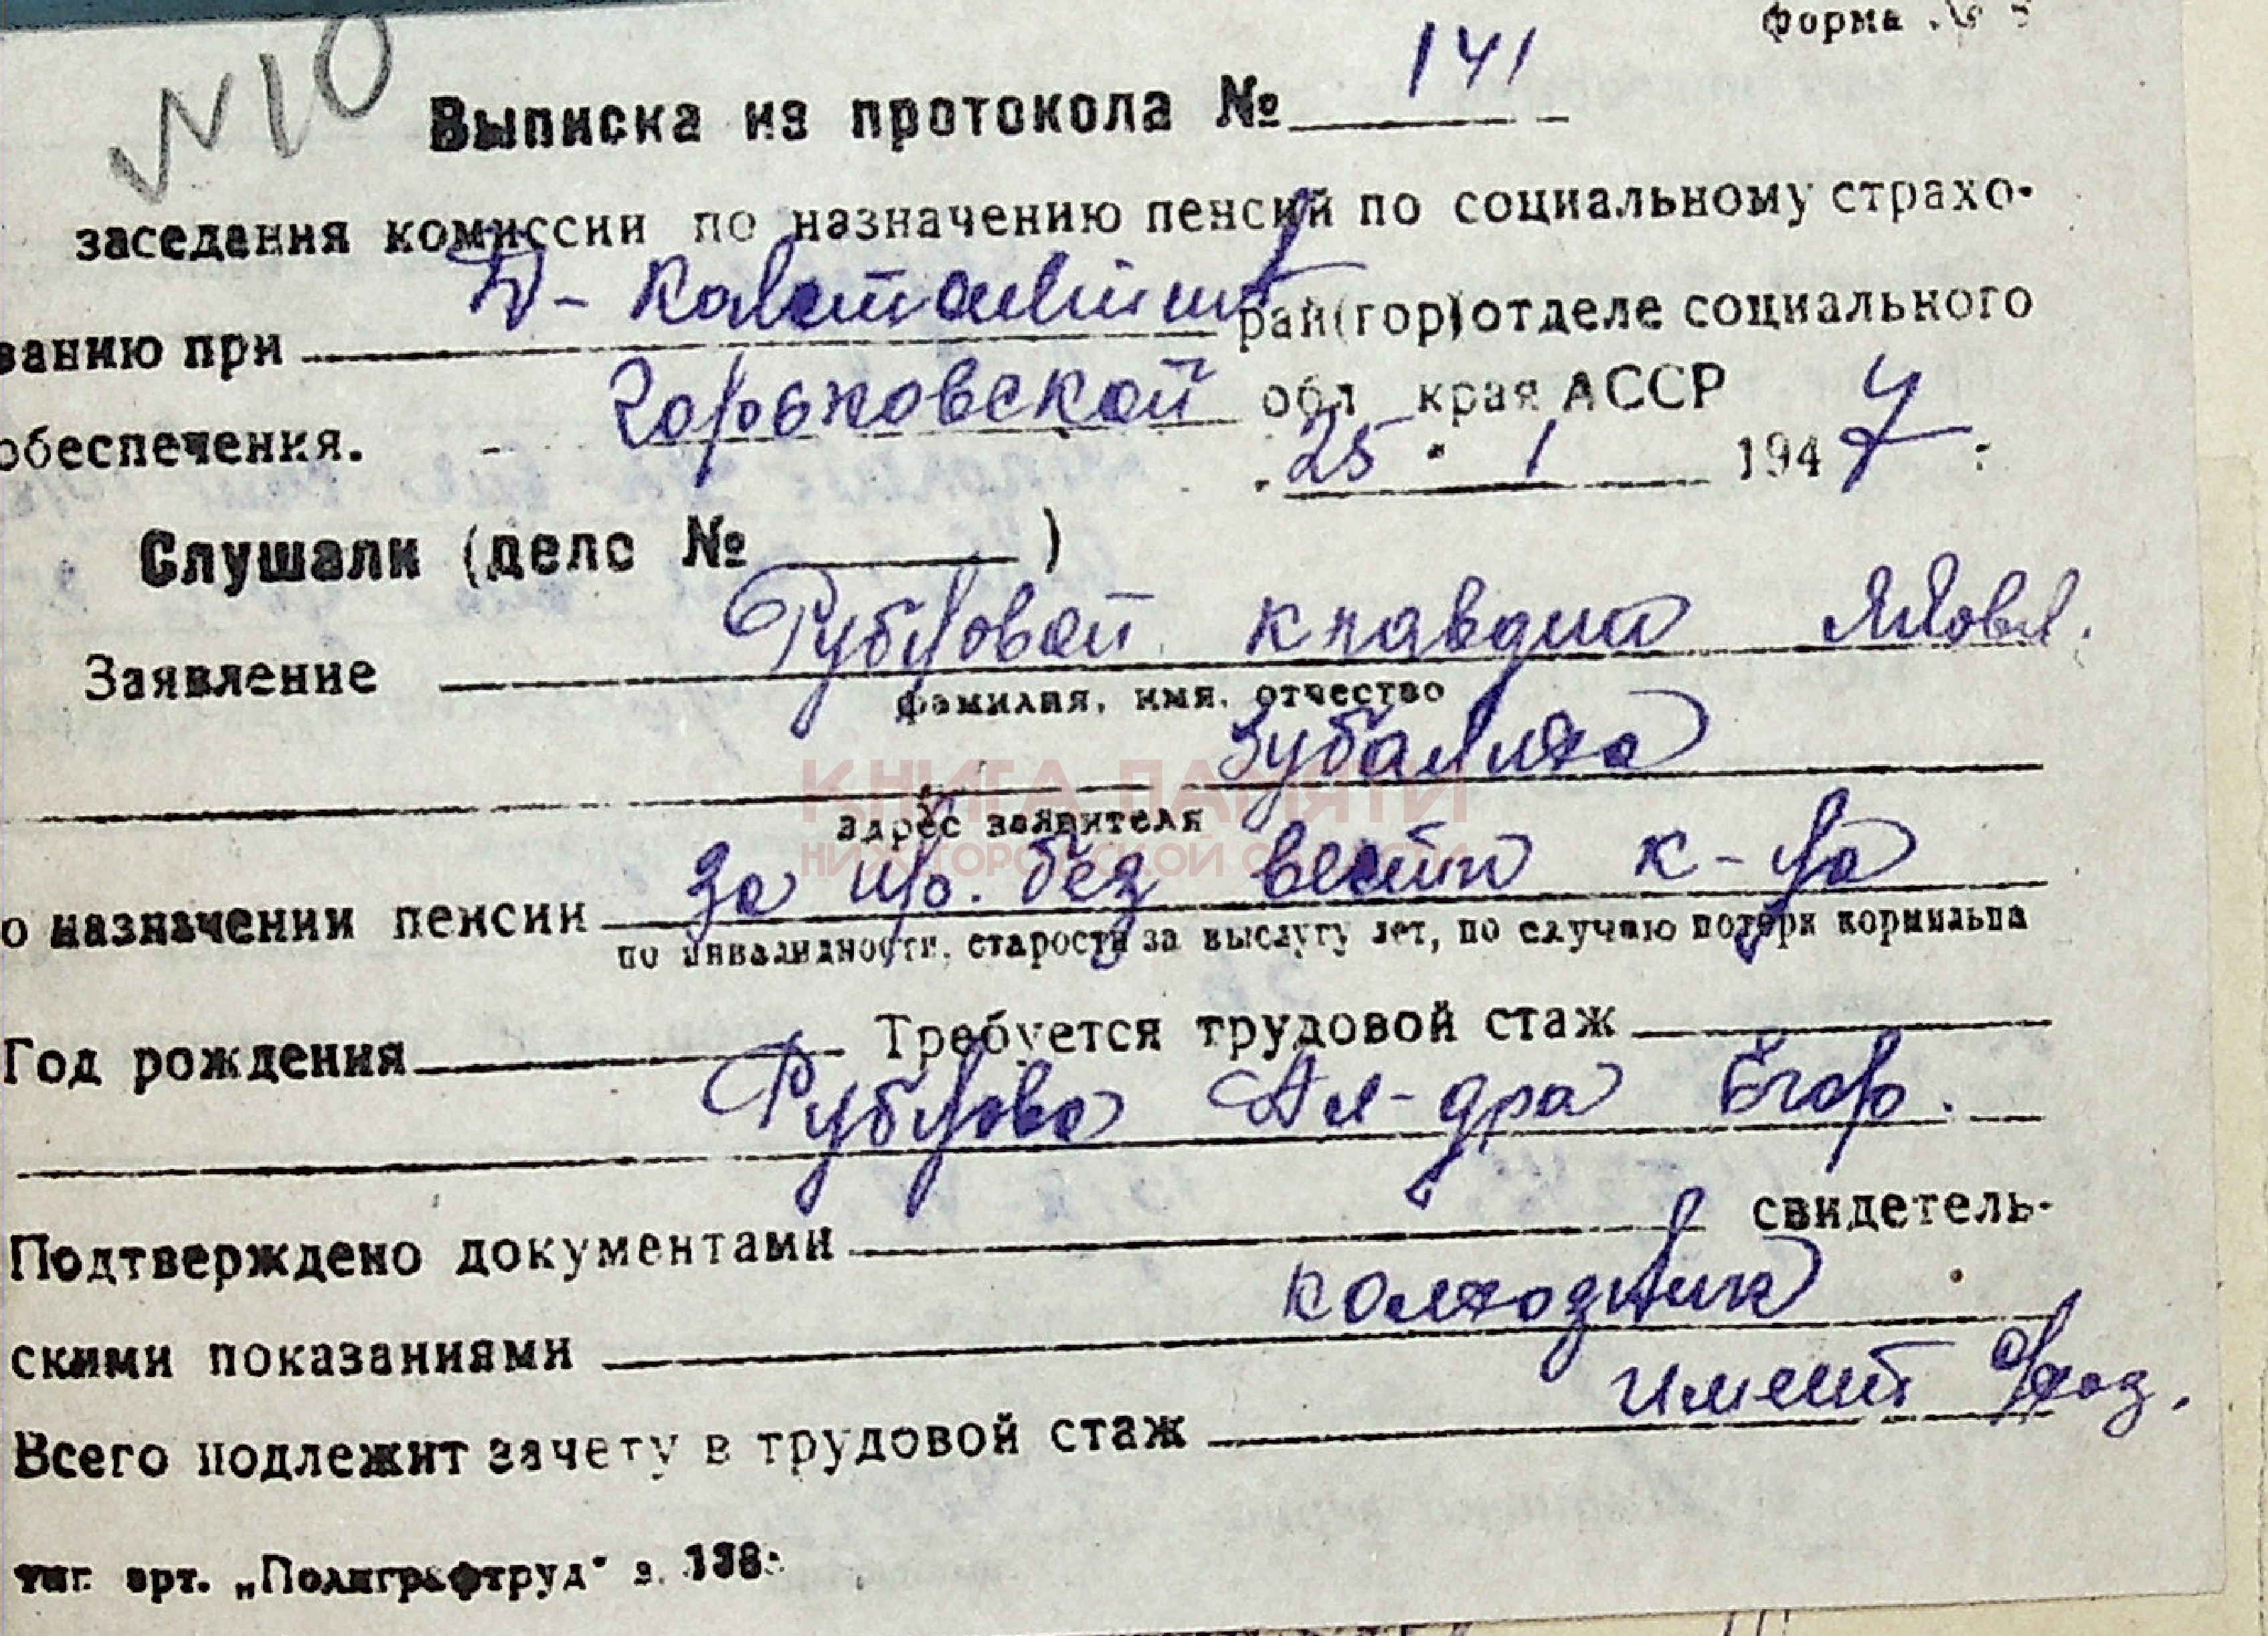 форма №
№10
Выписка из протокола № 141
заседания комиссии по назначению пенсий по социальному страхо-
ванию при Д-Константин рай(гор)отделе социального
обеспечения. Горьковской обл края АССР
"25" 1 1947 г
Слушали (дело № )
Заявление Рубцовой Клавдии Яковл.
фамилия, имя, отчество
Зубаниха
адрес заявителя
КНИГА ПАМЯТИ
НИЖЕГОРОДСКОЙ ОБЛАСТИ
о назначении пенсии за пр. без вести к-ца
по инвалидности, старости за выслугу лет, по случаю потери кормильца
Год рождения Требуется трудовой стаж
Рубцова Ал-дра Егор.
Подтверждено документами свидетель-
скими показаниями колхозник
Всего подлежит зачету в трудовой стаж имеет
тип. арт. „Полиграфтруд" з.